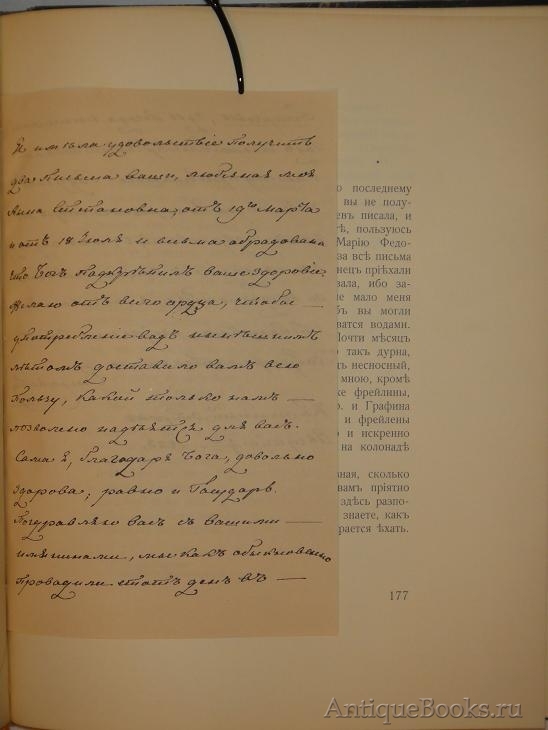 Я имѣла удовольствіе получить
два письма ваши, любезная моя
Анна Степановна, отъ 19го Марта
и отъ 18 Іюля и весьма обрадована
что Богъ подкрѣпилъ ваше здоровіе.
Желаю отъ всего сердца, чтобы —
употребленіе водъ нынѣшнимъ
лѣтомъ доставило вамъ всю
пользу, какой только намъ —
позволено надѣятся для васъ.
Сама я, благодаря Бога, довольно
здорова; равно и Государь.
Поздравляю васъ съ вашими —
имянинами, мы какъ обыкновенно
проводили етотъ день въ —
о последнему
вы не полу-
евъ писала, и
ѣ, пользуюсь
Марію Федо-
за всѣ письма
нецъ пріѣхали
вала, ибо за-
е мало меня
ъ вы могли
ватся водами.
Почти мѣсяцъ
такъ дурна,
ъ несносный,
мною, кромѣ
ке фрейлины,
р. и Графина
и фрейлены
о и искренно
на колонадѣ
зная, сколько
вамъ пріятно
здѣсь разпо-
знаете, какъ
рается ѣхать.
177
AntiqueBooks.ru